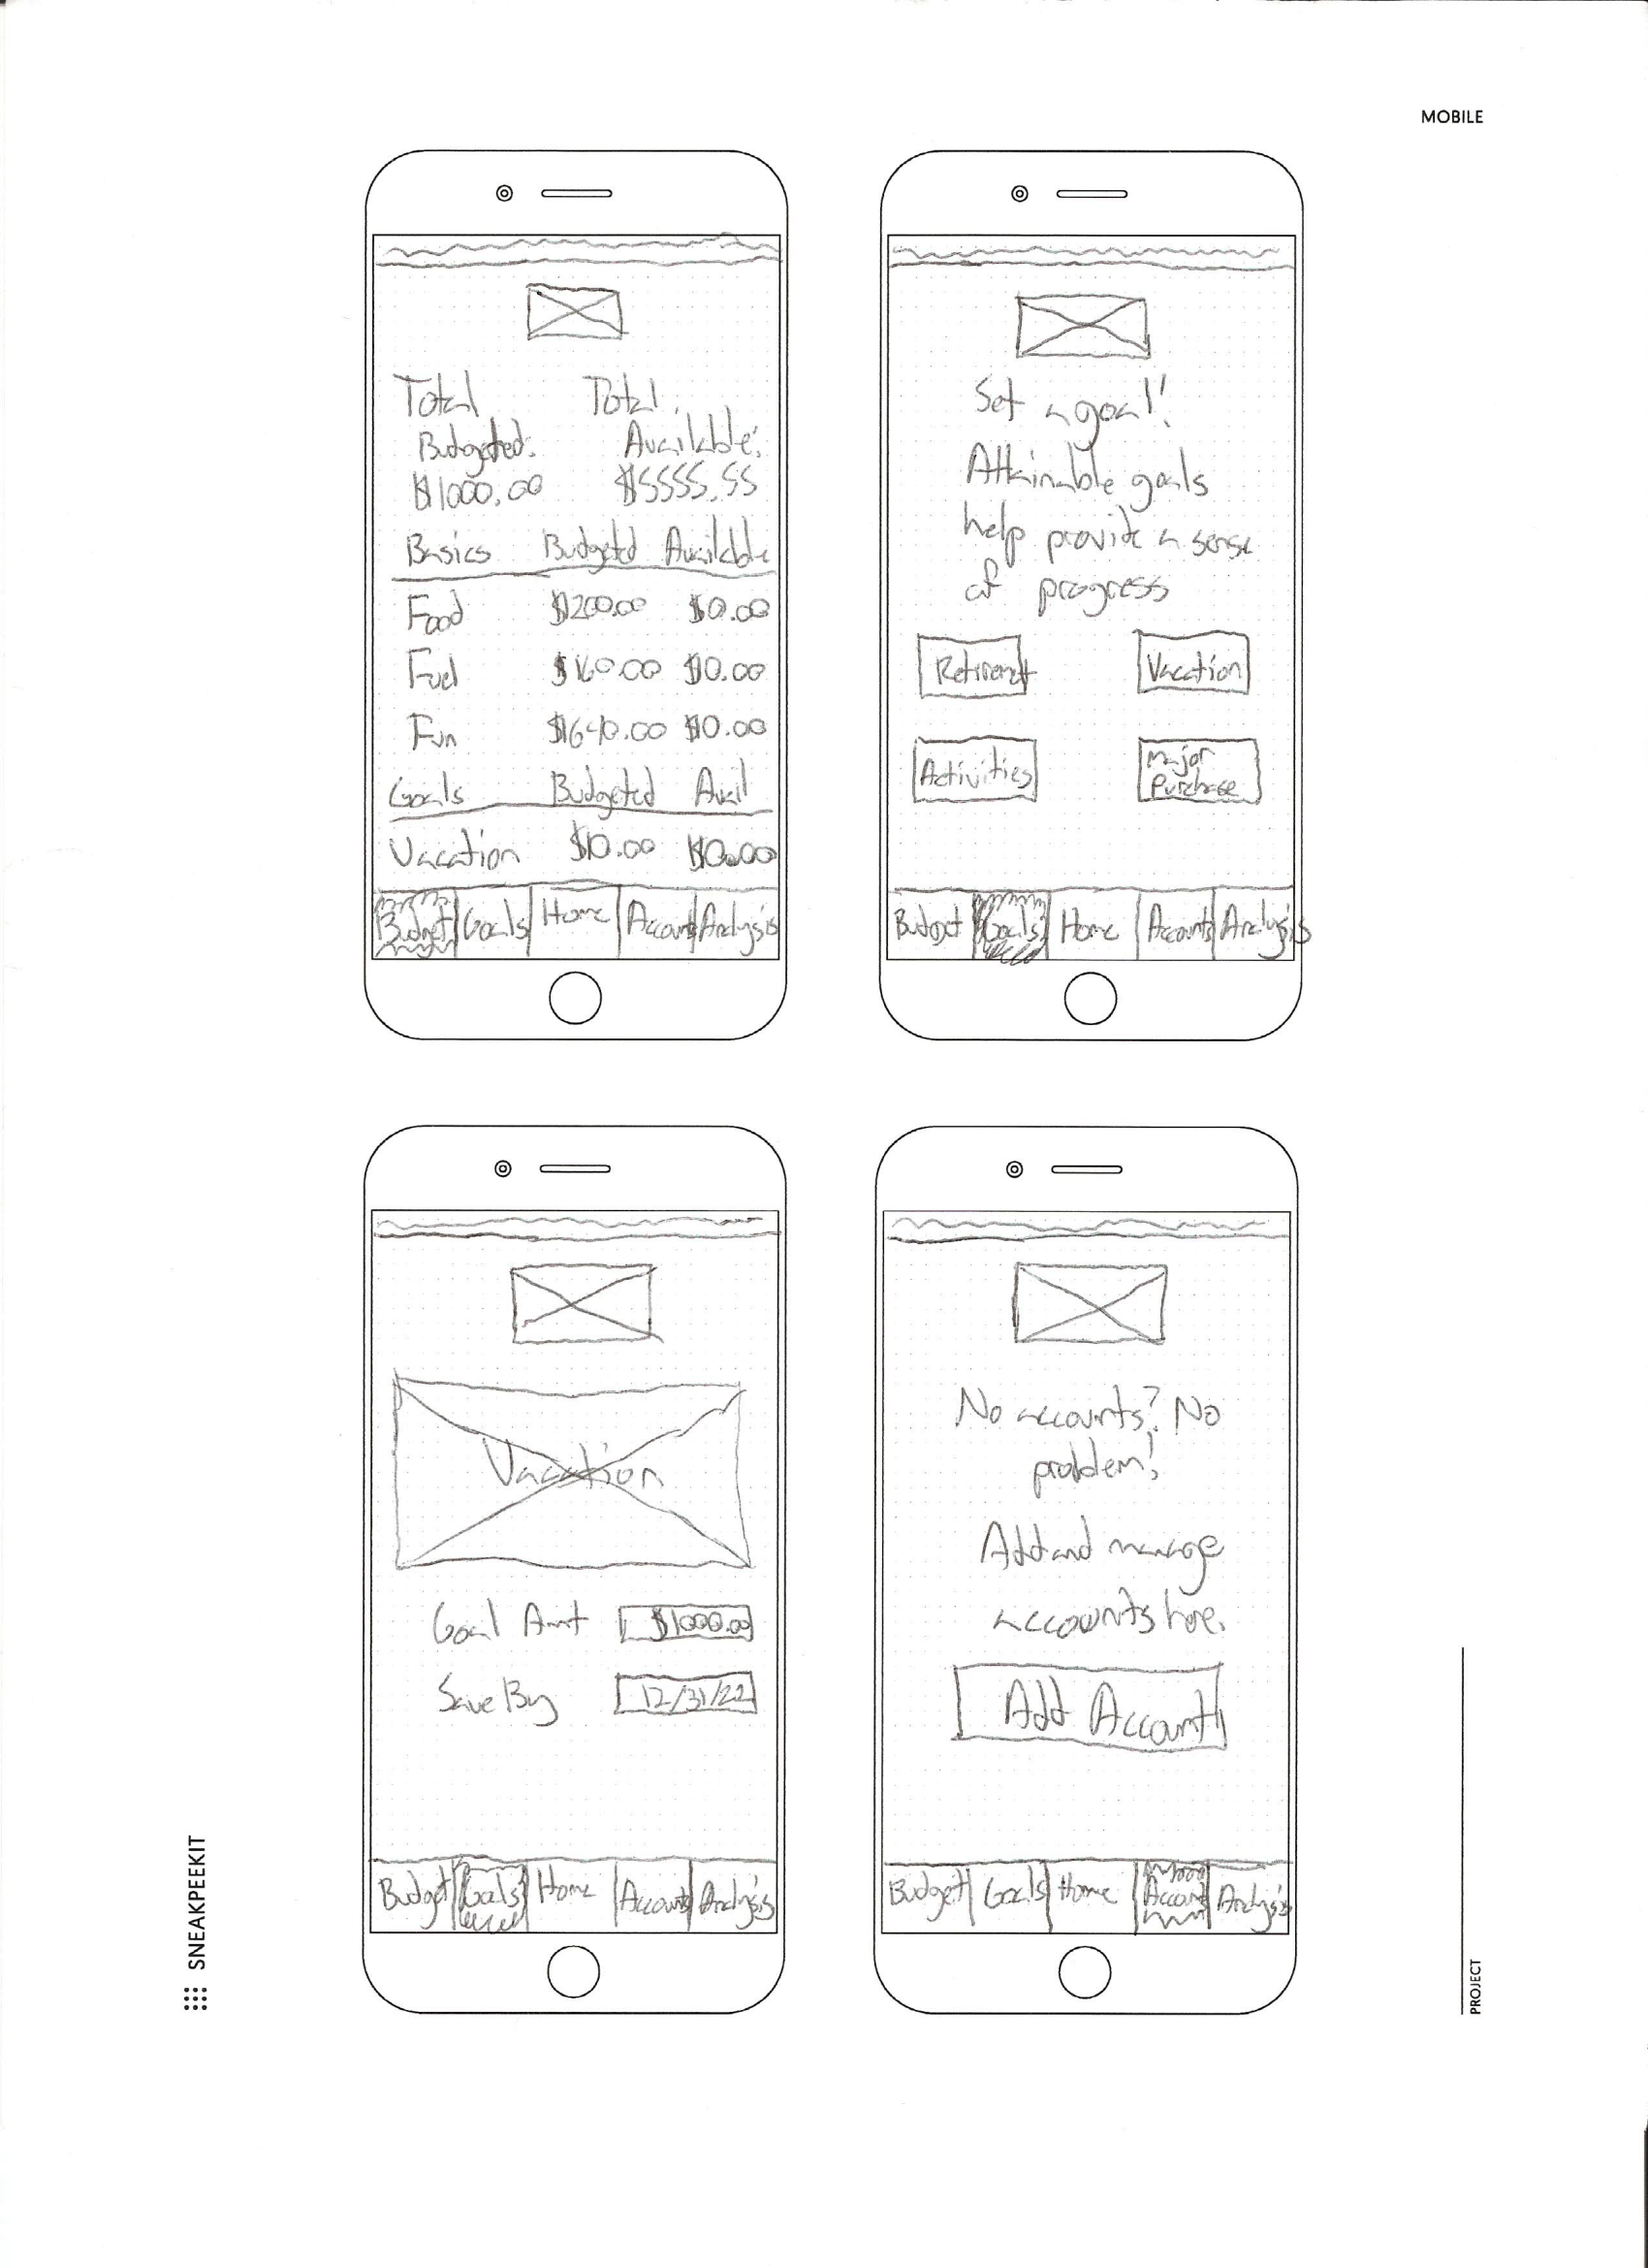 MOBILE
Total Total
Budgeted: Available:
$1000.00 $5555.55
Basics Budgeted Available
Food $200.00 $0.00
Fuel $160.00 $0.00
Fun $640.00 $0.00
Goals Budgeted Avail
Vacation $10.00 $0.00
Budget Goals Home Accounts Analysis
Set a goal!
Attainable goals
help provide a sense
of progress
Retiremet Vacation
Activities
Major
Purchase
Budget Goals Home Accounts Analysis
Vacation
Goal Amt $1000.00
Save By 12/31/22
Budget Goals Home Accounts Analysis
No accounts? No
problem!
Add and manage
accounts here.
Add Account
Budget Goals Home Account Analysis
SNEAKPEEKIT
PROJECT